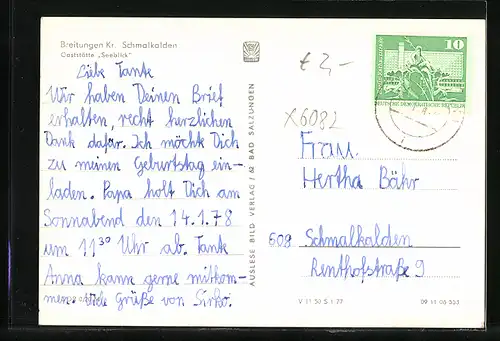 Breitungen Kr. Schmalkalden
Gaststätte „Seeblick"
Liebe Tante
Wir haben Deinen Brief
erhalten, recht herzlichen
Dank dafür. Ich möchte Dich
zu meinen Geburtstag ein-
laden. Papa holt Dich am
Sonnabend den 14.1.78
um 11³⁰ Uhr ab. Tante
Anna kann gerne mitkom-
men. Viele Grüße von Sirko.
AUSLESE BILD VERLAG / 62 BAD SALZUNGEN
€ 2,-
X6082
10
DEUTSCHE DEMOKRATISCHE REPUBLIK
Frau
Hertha Bähr
608 Schmalkalden
Renthofstraße 9
V 11 50 S 1 77
09 11 06 303